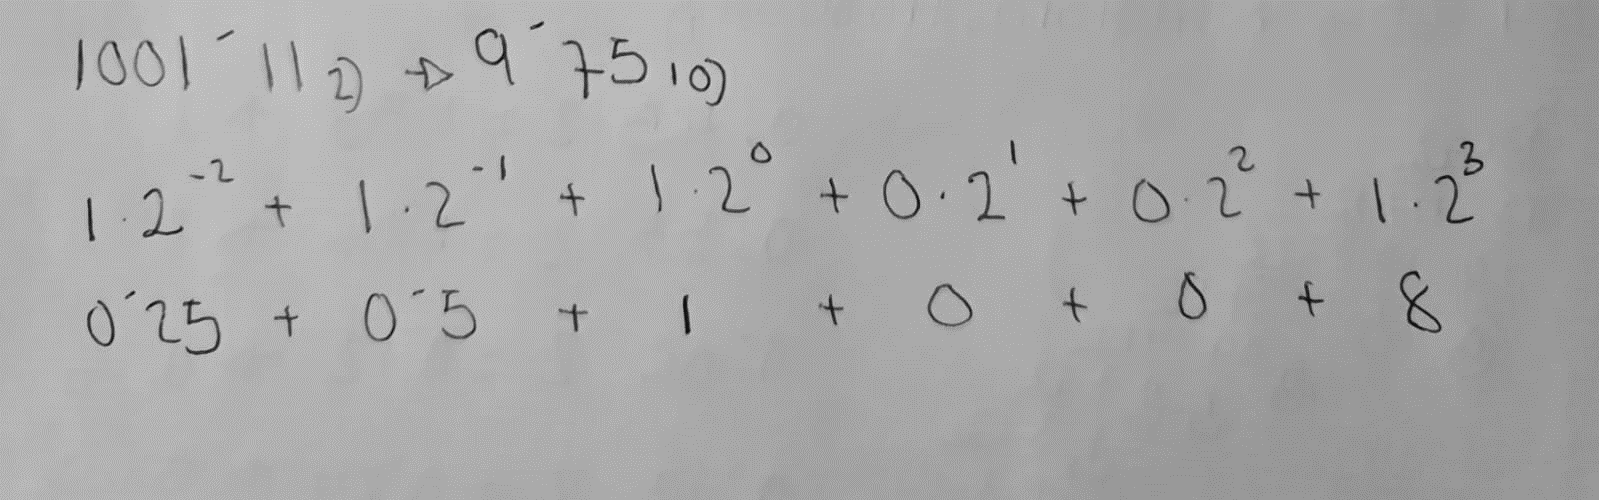 1001´11 2) → 9´75 10)
1·2⁻² + 1·2⁻¹ + 1·2⁰ + 0·2¹ + 0·2² + 1·2³
0´25 + 0´5 + 1 + 0 + 0 + 8